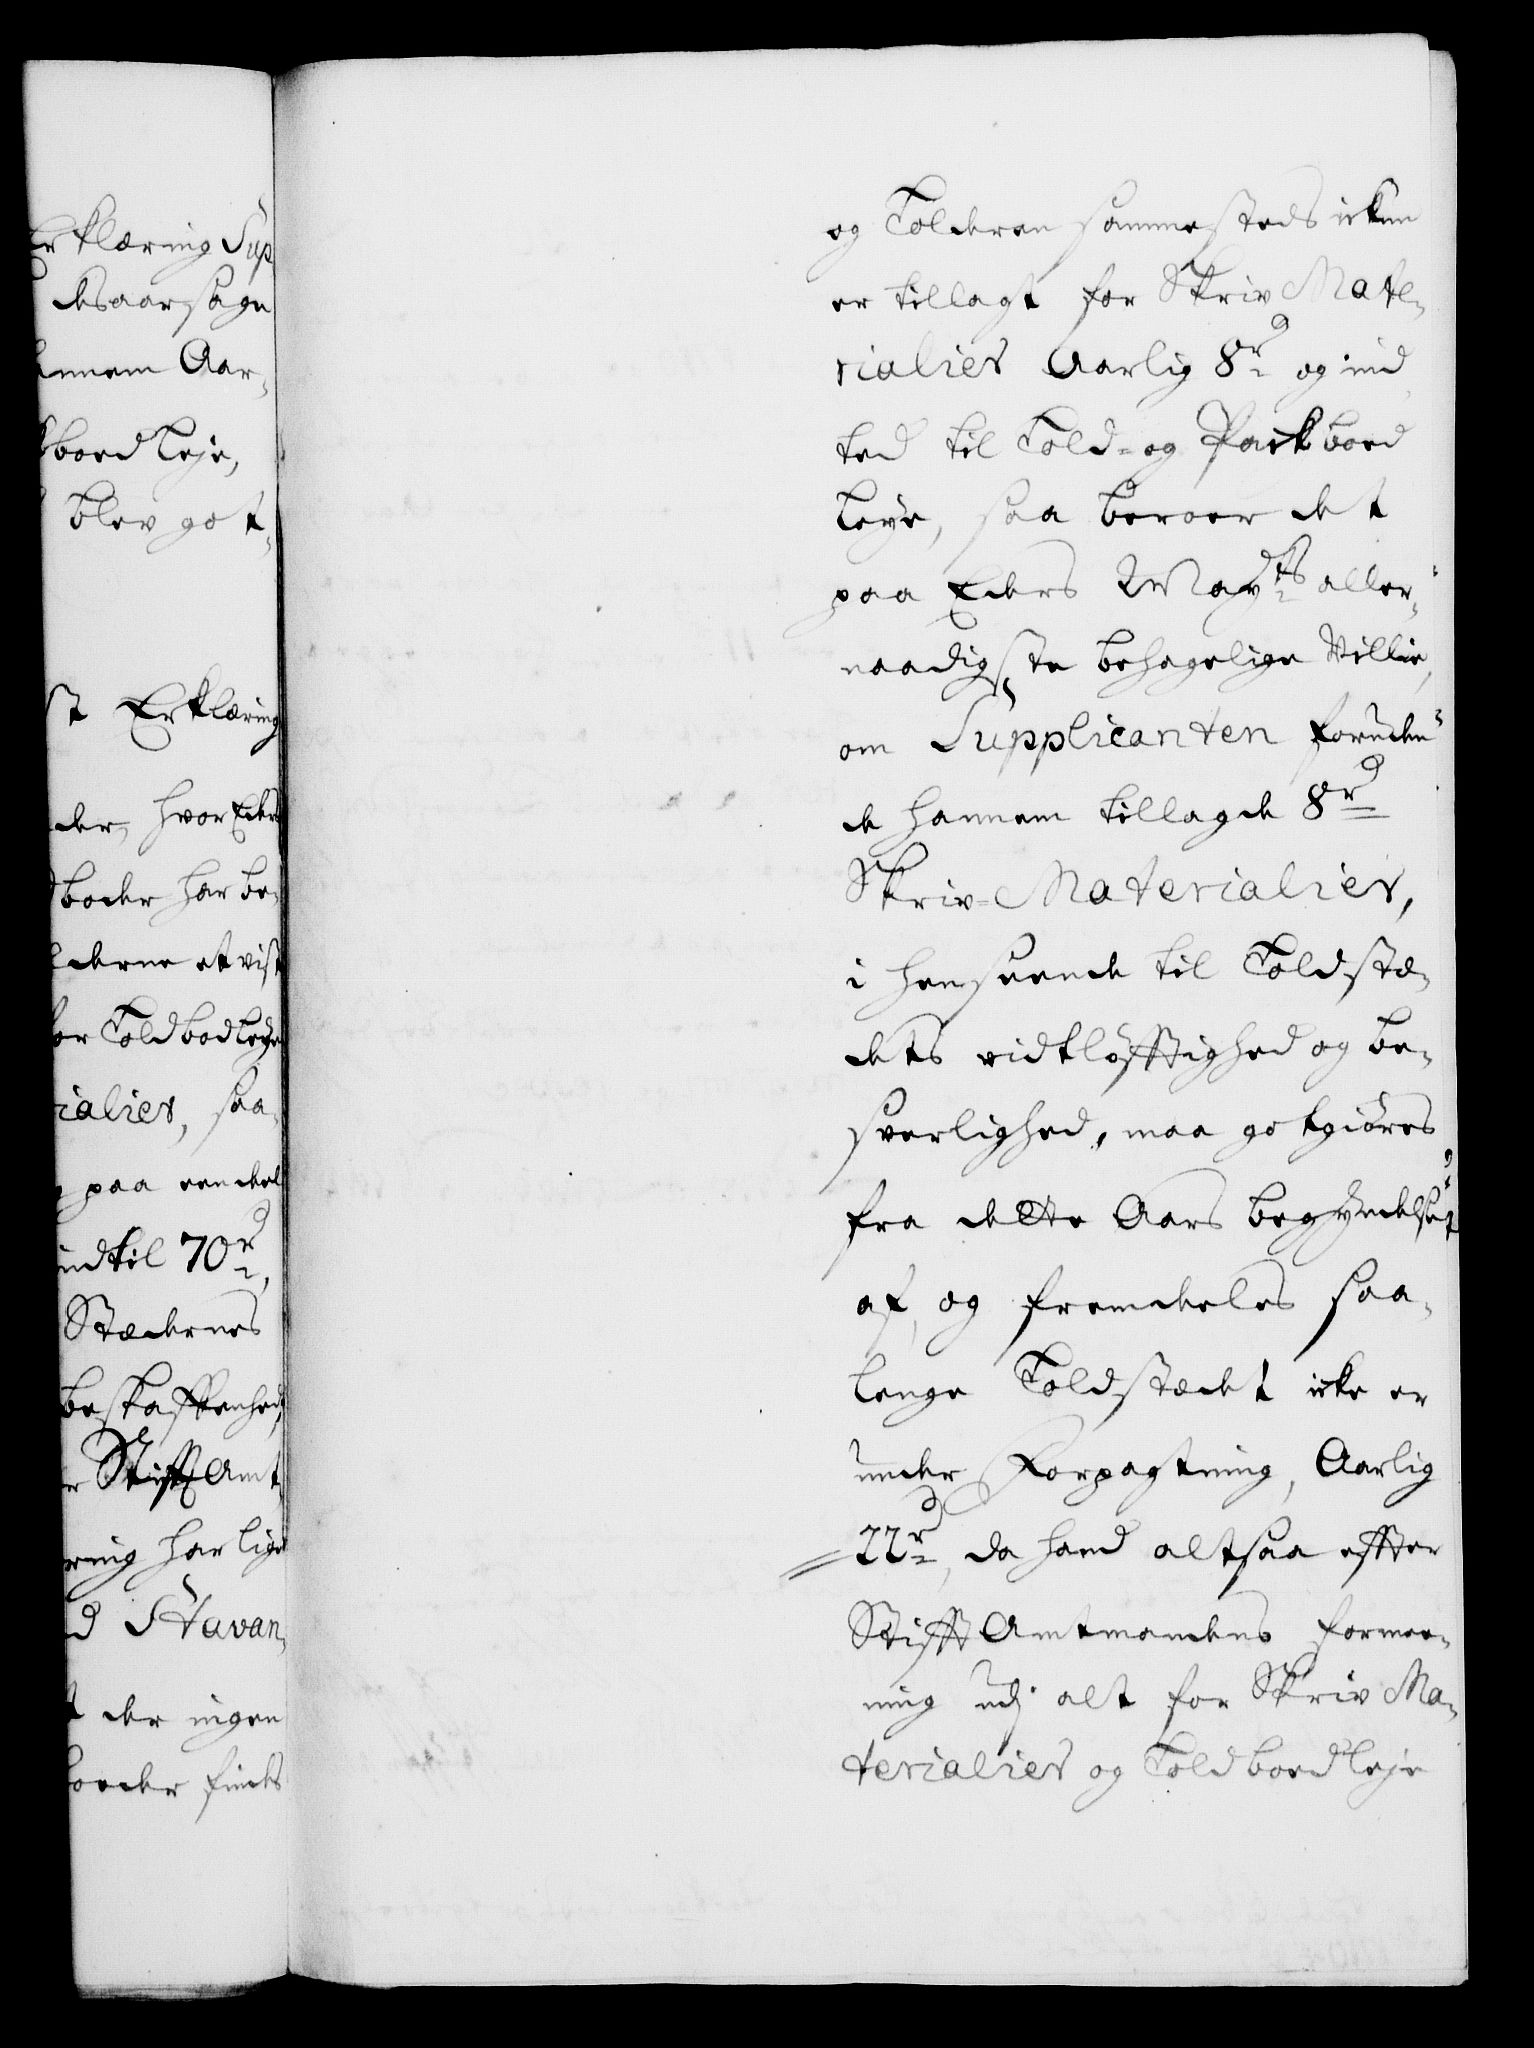 Erklæring Sup
desaarsage
hannem Aar-
boed Leje,
blev got-
st Erklæring
der, hvor Eders
boder har be-
derne et vist
for Toldbod leje
rialier, saa-
paa een deel
indtil 70 rd,
Stædernes
beskaffenhed,
Stift Amt-
ring har lige
d Stavan-
t der ingen
boeder findes
og Tolderen sammesteds ickun
er tillagt for Skriv Mate-
rialier Aarlig 8 rd og ind
ted til Told- og Packboed
Leye, saa beroer det
paa Eders Mayts aller-
naadigste behagelige Villie,
om Supplicanten foruden
de hannem tillagde 8 rd
Skriv-Materialier,
i henseende til Toldstæ-
dets vidtløfftighed og be-
sværlighed, maa gotgiøres
fra dette Aars begyndelse
af, og fremdeeles saa-
lenge Toldstædet icke er
under Forpagtning, Aarlig
22 rd, da hand altsaa effter
Stifft Amtmandens formee-
ning udj alt for Skriv Ma-
terialier og Toldboed leje